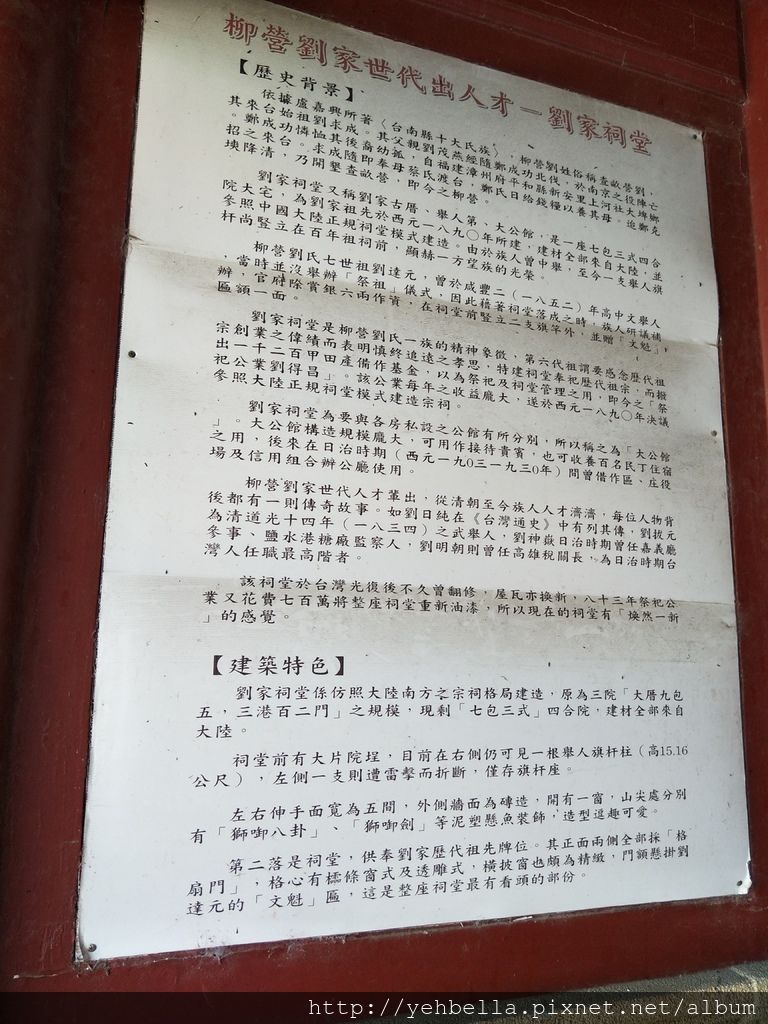 柳營劉家世代出人才－劉家祠堂
【歷史背景】
依據盧嘉興所著〈台南縣十大氏族〉，柳營劉姓俗稱查畝營劉，
其來台始祖劉求成。其父親劉茂燕經隨鄭成功北伐，於南京之役陣亡
。鄭成功憐恤其後裔幼孤，自福建漳州府平和縣新安里上河社大埤鄉
招之來台。求成隨即奉母蔡氏渡台，鄭氏日給錢糧以養其母。迨鄭克
塽降清，乃開墾查畝營，即今之柳營。
劉家祠堂又稱劉家古厝、舉人第、大公館，是一座七包三式四合
院大宅，為劉家祖先於西元一八九〇年所建，建材全部來自大陸，並
參照中國大陸正規祠堂模式建造。由於族人曾中舉，至今一支舉人旗
杆尚豎立在百年祖祠前，顯赫一方望族的光榮。
柳營劉氏七世祖劉達元，曾於咸豐二（一八五二）年高中文舉人
，當時並沒舉辦「祭祖」儀式，因此藉著祠堂落成之時，族人研議補
辦，官府除賞銀六兩作資，在祠堂前豎立二支旗竿外，並贈「文魁」
區額一面。
劉家祠堂是柳營劉氏一族的精神象徵，第六代祖謂要感念歷代祖
宗創業之偉績而表明慎終追遠之孝思，特建祠堂奉祀歷代祖宗，而撥
出一千二百甲田產備作基金，以為祭祀及祠堂管理之用，即今之「祭
祀公業劉得昌」。該公業每年之收益龐大，遂於西元一八九〇年決議
參照大陸正規祠堂模式建造宗祠。
劉家祠堂為要與各房私設之公館有所分別，所以稱之為「大公館
」。大公館構造規模龐大，可用作接待貴賓，也可收養百名民丁住宿
之用，後來在日治時期（西元一九〇三一九三〇年）間曾借作區、庄役
場及信用組合辦公廳使用。
柳營劉家世代人才輩出，從清朝至今族人人才濟濟，每位人物背
後都有一則傳奇故事。如劉日純在《台灣通史》中有列其傳，劉拔元
為清道光十四年（一八三四）之武舉人，劉神嶽日治時期曾任嘉義廳
參事、鹽水港糖廠監察人，劉明朝則曾任高雄稅關長，為日治時期台
灣人任職最高階者。
該祠堂於台灣光復後不久曾翻修，屋瓦亦換新，八十三年祭祀公
業又花費七百萬將整座祠堂重新油漆，所以現在的祠堂有「煥然一新
」的感覺。
【建築特色】
劉家祠堂係仿照大陸南方之宗祠格局建造，原為三院「大厝九包
五，三港百二門」之規模，現剩「七包三式」四合院，建材全部來自
大陸。
祠堂前有大片院埕，目前在右側仍可見一根舉人旗杆柱（高15.16
公尺），左側一支則遭雷擊而折斷，僅存旗杆座。
左右伸手面寬為五間，外側牆面為磚造，開有一窗，山尖處分別
有「獅啣八卦」、「獅啣劍」等泥塑懸魚裝飾，造型逗趣可愛。
第二落是祠堂，供奉劉家歷代祖先牌位。其正面兩側全部採「格
扇門」，格心有櫺條窗式及透雕式，橫披窗也頗為精緻，門額懸掛劉
達元的「文魁」匾，這是整座祠堂最有看頭的部份。
http://yehbella.pixnet.net/album